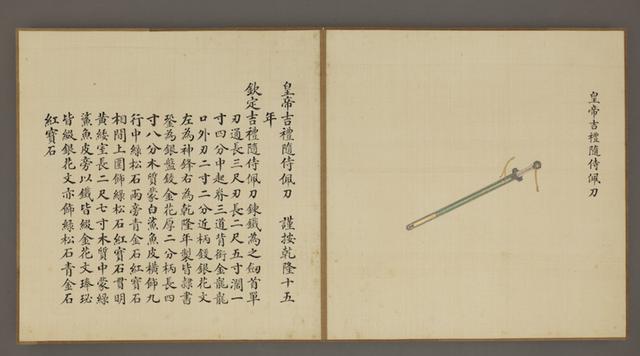 皇帝吉禮隨侍佩刀
皇帝吉禮隨侍佩刀 謹按乾隆十五
年
欽定吉禮隨侍佩刀鍊鐵為之首單
刃通長三尺刃長二尺五寸濶一
寸四分中起脊三道背銜金龍龍
口外刃二寸二分近柄鋄銀花文
左為神鋒右為乾隆年製皆隸書
銎為銀盤鋄金花厚二分柄長四
寸八分木質蒙白鯊魚皮橫飾九
行中綠松石兩旁青金石紅寶石
相間上圍飾綠松石紅寶石貫明
黃緌室長二尺七寸木質中蒙綠
鯊魚皮旁以鐵皆鋄金花文琫珌
皆鋄銀花文亦飾綠松石青金石
紅寶石